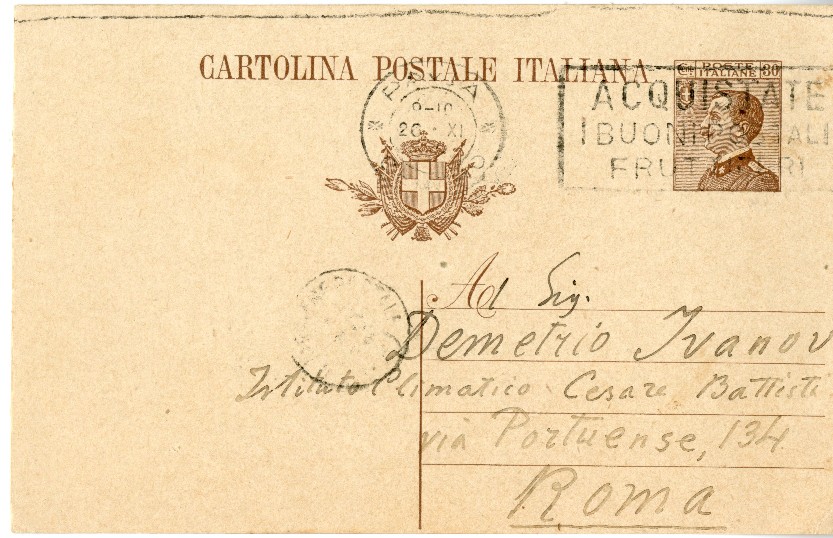 CARTOLINA POSTALE ITALIANA
Cs POSTE ITALIANE 30
9-10
20 · XI
ACQUISTATE
I BUONI POSTALI
FRUTTIFERI
Ad Sig.
Demetrio Ivanov
Istituto Climatico Cesare Battisti
via Portuense, 134
Roma